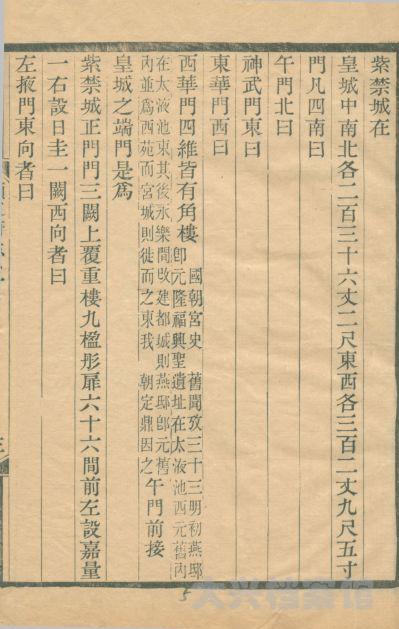 紫禁城在
皇城中南北各二百三十六丈二尺東西各三百二丈九尺五寸
門凡四南曰
午門北曰
神武門東曰
東華門西曰
西華門四維皆有角樓
國朝宮史 舊聞攷三十三明初燕邸
卽元隆福興聖遺址在太液池西元舊內
在太液池東其後永樂間改建都城則燕邸卽元舊
內並爲西苑而宮城則徙而之東我 朝定鼎因之
午門前接
皇城之端門是爲
紫禁城正門門三闕上覆重樓九楹彤扉六十六間前左設嘉量
一右設日圭一闕西向者曰
左掖門東向者曰
5
大兴档案馆